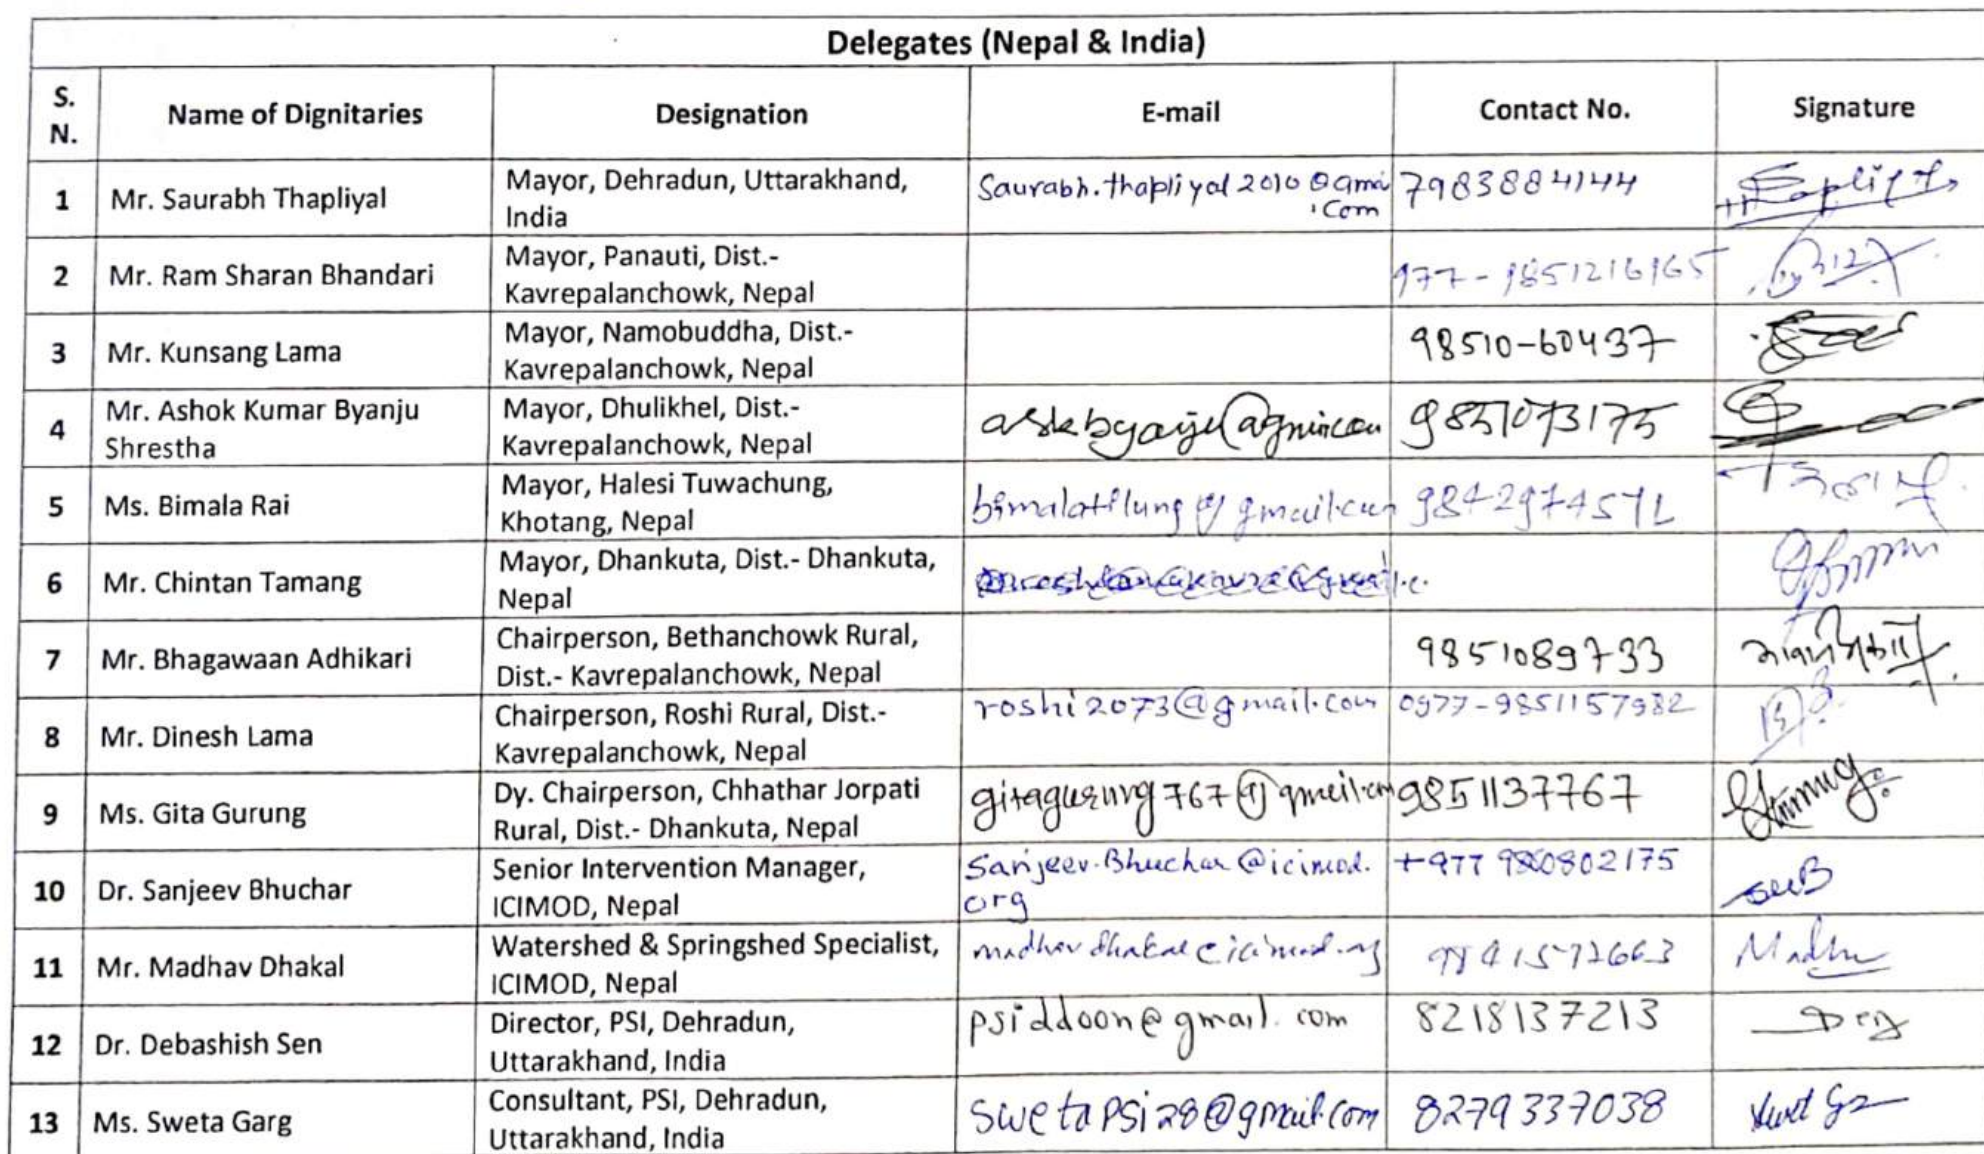 Delegates (Nepal & India)
S. N. Name of Dignitaries Designation E-mail Contact No. Signature
1 Mr. Saurabh Thapliyal Mayor, Dehradun, Uttarakhand, India Saurabh.thapliyal2010@gmai .com 7983884144
2 Mr. Ram Sharan Bhandari Mayor, Panauti, Dist.- Kavrepalanchowk, Nepal 977-9851216165
3 Mr. Kunsang Lama Mayor, Namobuddha, Dist.- Kavrepalanchowk, Nepal 98510-60437
4 Mr. Ashok Kumar Byanju Shrestha Mayor, Dhulikhel, Dist.- Kavrepalanchowk, Nepal 9851073175
5 Ms. Bimala Rai Mayor, Halesi Tuwachung, Khotang, Nepal
6 Mr. Chintan Tamang Mayor, Dhankuta, Dist.- Dhankuta, Nepal
7 Mr. Bhagawaan Adhikari Chairperson, Bethanchowk Rural, Dist.- Kavrepalanchowk, Nepal 9851089733
8 Mr. Dinesh Lama Chairperson, Roshi Rural, Dist.- Kavrepalanchowk, Nepal roshi2073@gmail.com 0977-9851157982
9 Ms. Gita Gurung Dy. Chairperson, Chhathar Jorpati Rural, Dist.- Dhankuta, Nepal gitagurung767@gmeil.com 9851137767
10 Dr. Sanjeev Bhuchar Senior Intervention Manager, ICIMOD, Nepal Sanjeev.Bhuchar@icimod. org
11 Mr. Madhav Dhakal Watershed & Springshed Specialist, ICIMOD, Nepal Madhu
12 Dr. Debashish Sen Director, PSI, Dehradun, Uttarakhand, India psiddoon@gmail.com 8218137213
13 Ms. Sweta Garg Consultant, PSI, Dehradun, Uttarakhand, India swetapsi28@gmail.com 8279337038